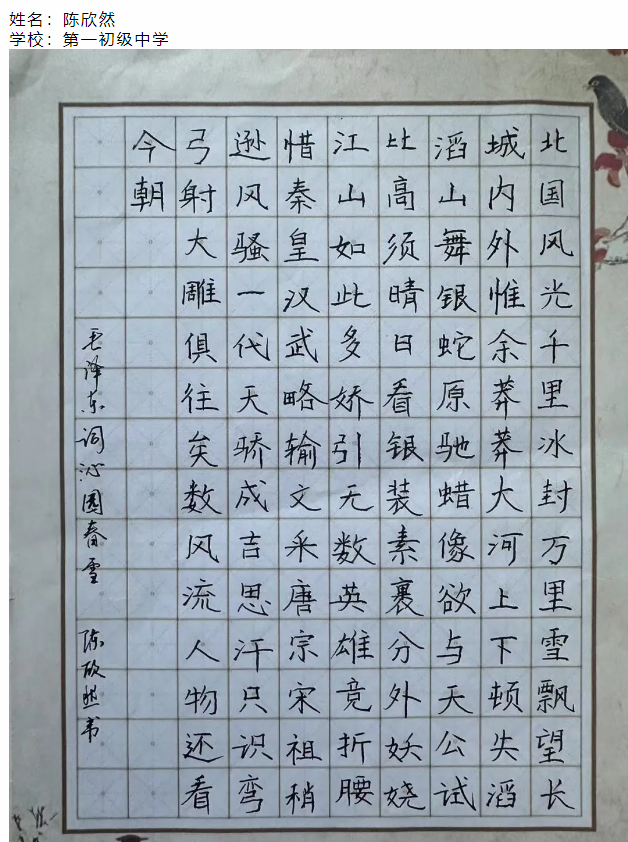 姓名：陈欣然
学校：第一初级中学
北国风光千里冰封万里雪飘望长
城内外惟余莽莽大河上下顿失滔
滔山舞银蛇原驰蜡像欲与天公试
比高须晴日看银装素裹分外妖娆
江山如此多娇引无数英雄竞折腰
惜秦皇汉武略输文采唐宗宋祖稍
逊风骚一代天骄成吉思汗只识弯
弓射大雕俱往矣数风流人物还看
今朝
毛泽东词沁园春雪 陈欣然书